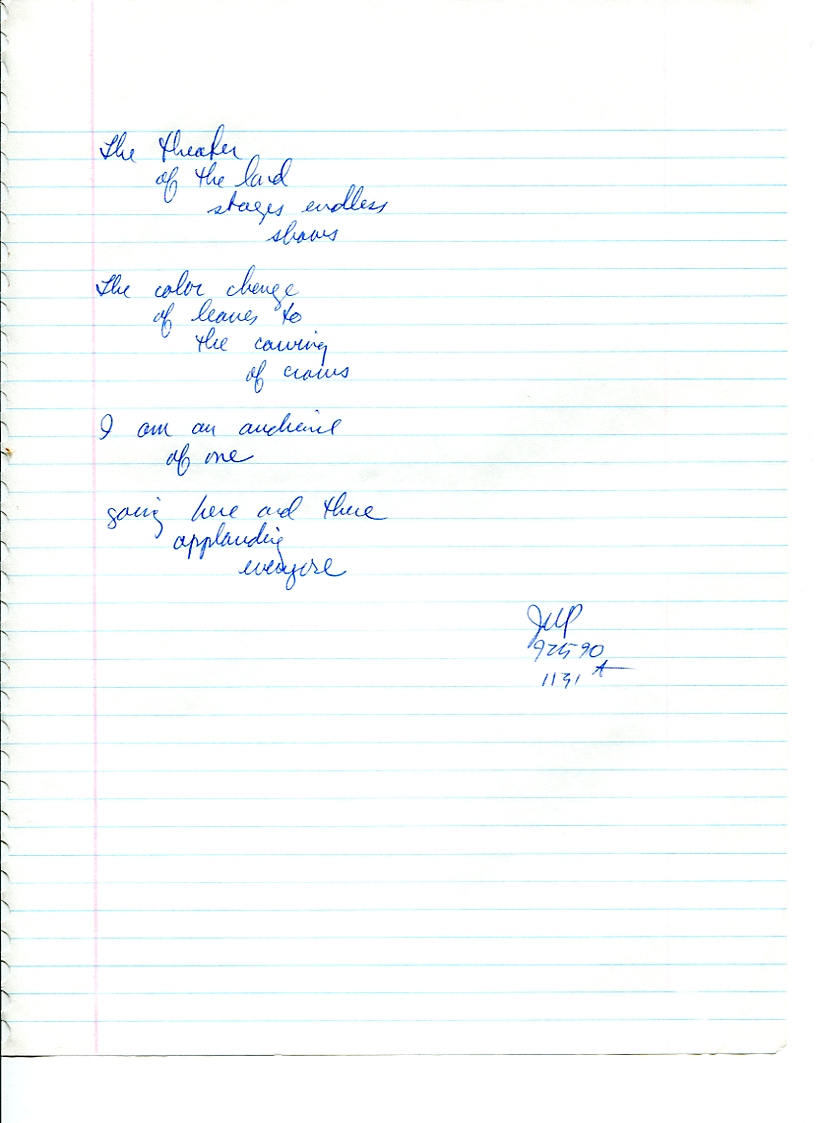 The theater
of the land
stages endless
shows
The color change
of leaves to
the cawing
of crows
I am an audience
of one
going here and there
applauding
everyone
92590
1131 A